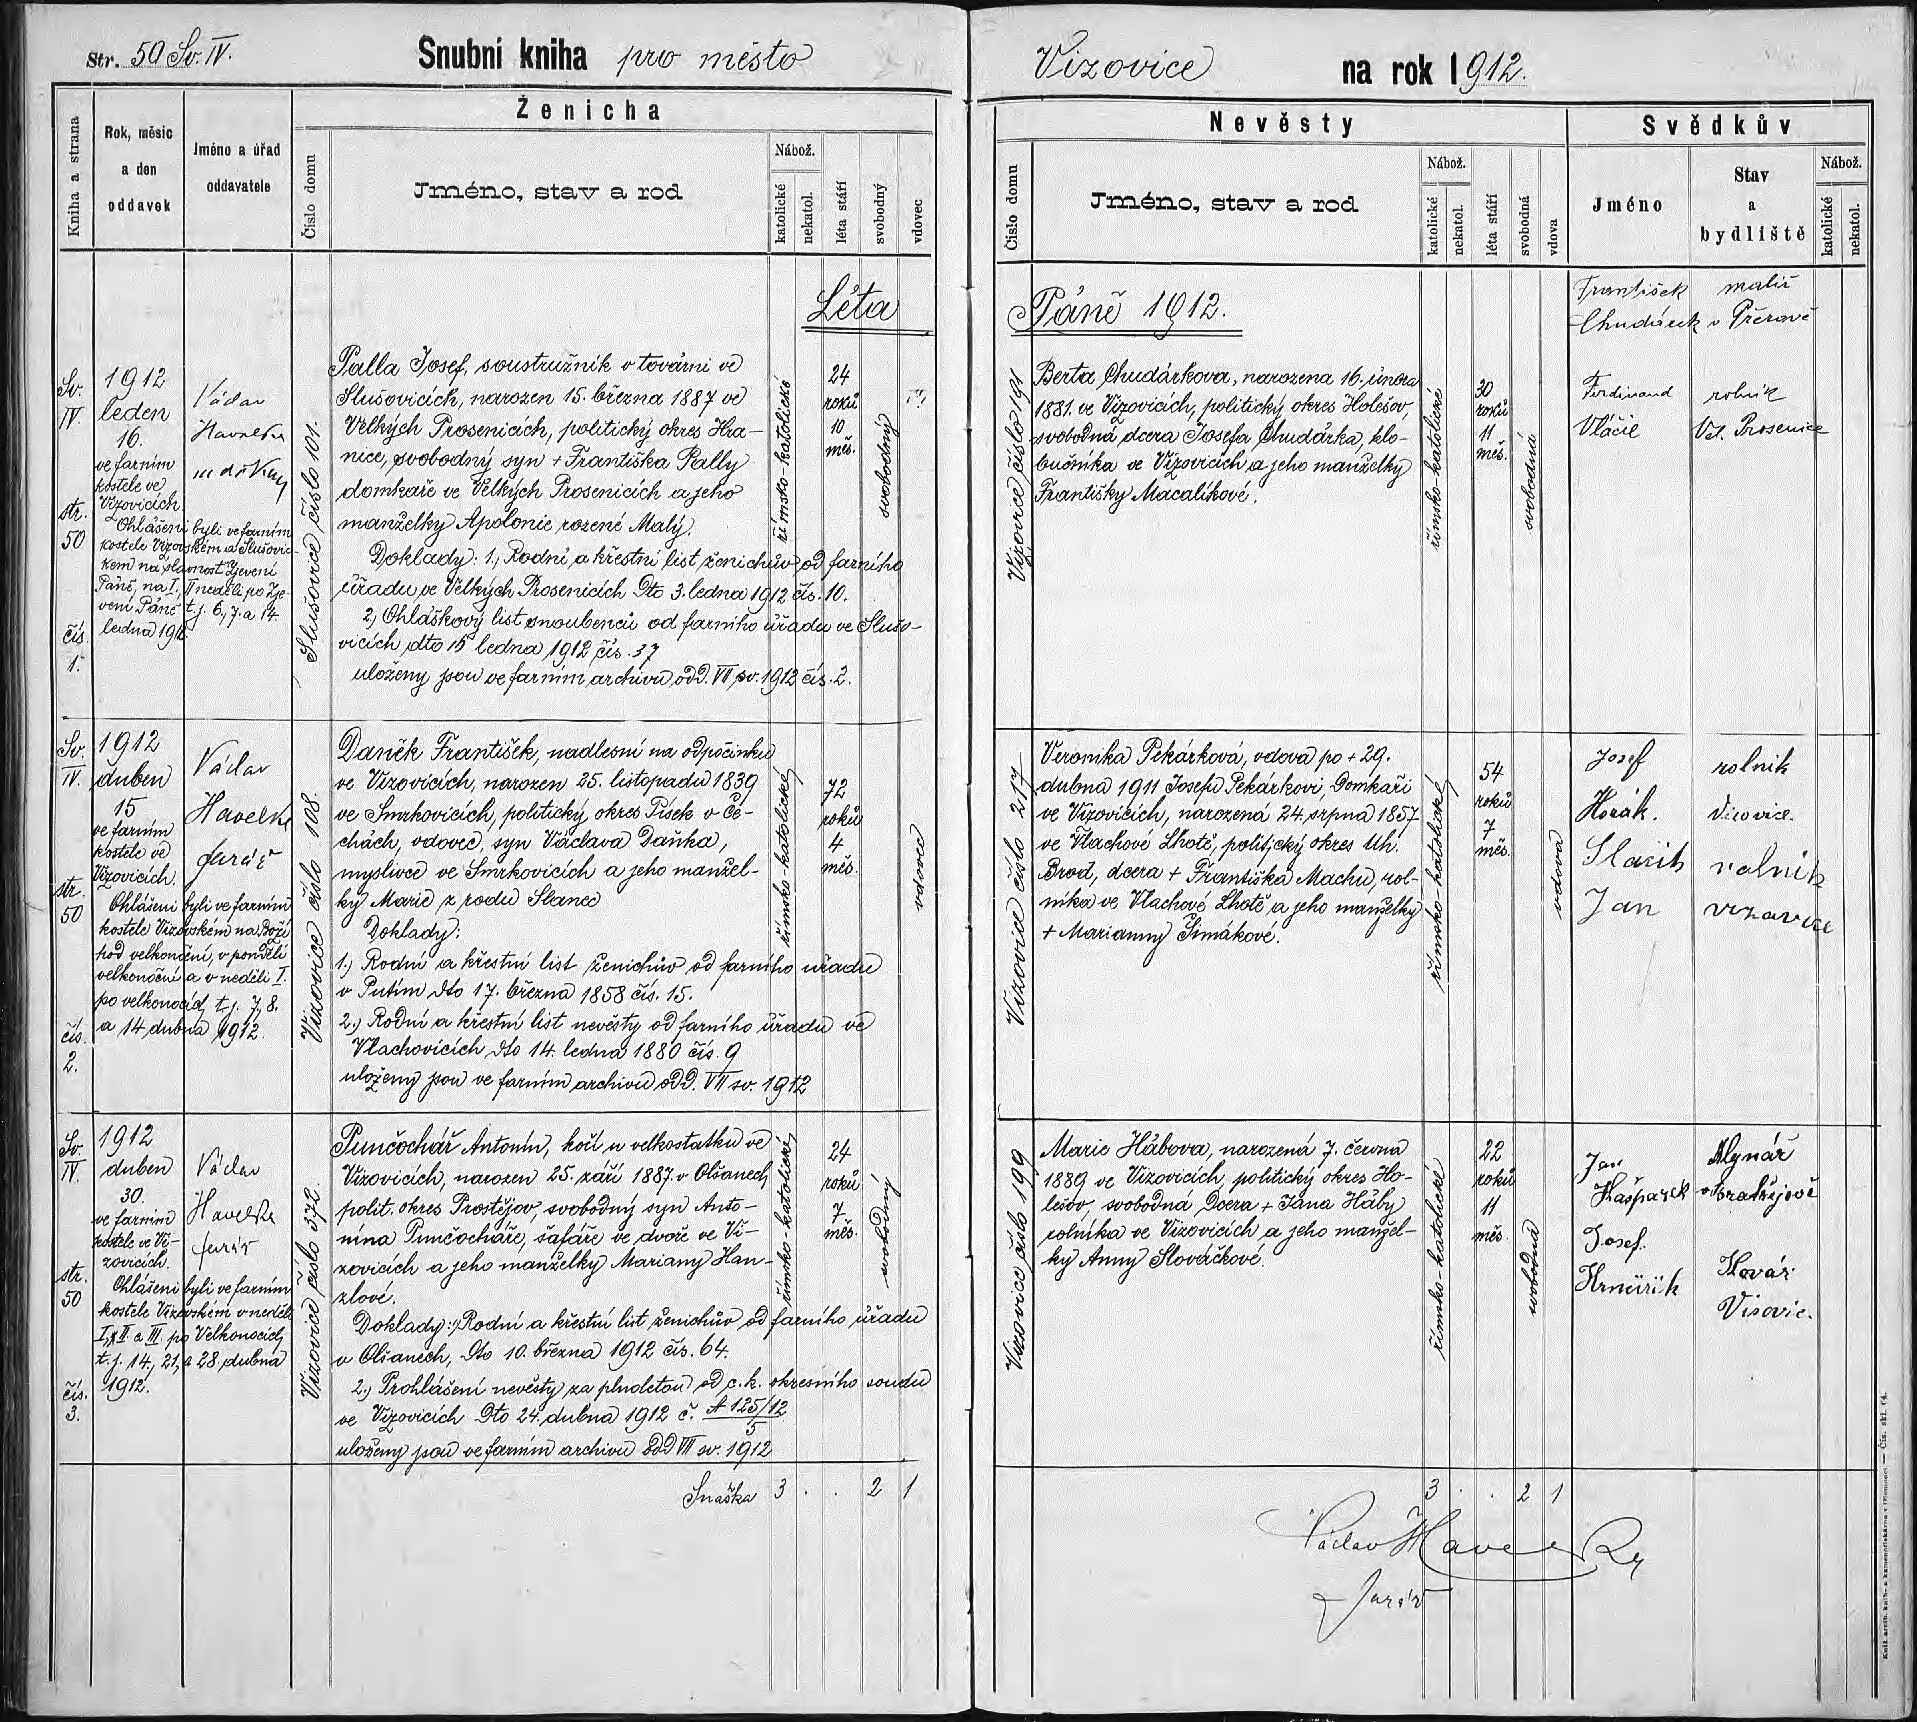 Str. 50 Sv. IV.
Snubní kniha pro město
Kniha a strana
Rok, měsíc
a den
oddavek
Jméno a úřad
oddavatele
Ženicha
Číslo domu
Jméno, stav a rod
Nábož.
katolické
nekatol.
léta stáří
svobodný
vdovec
Léta
Sv.
IV.
str.
50
čís.
1.
1912
leden
16.
ve farním
kostele ve
Vizovicích.
Ohlášeni byli ve farním
kostele Vizovském a Slušovic-
kém na slavnost Zjevení
Páně, na I., II neděli po Zje-
vení Páně t. j. 6., 7. a 14.
ledna 1912
Václav
Havelka
Slušovice číslo 101.
Palla Josef, soustružník v továrni ve
Slušovicích, narozen 15. března 1887 ve
Velkých Prosenicích, politický okres Hra-
nice, svobodný syn + Františka Pally
domkaře ve Velkých Prosenicích a jeho
manželky Apolonie rozené Malý.
Doklady: 1., Rodní a křestní list ženichův od farního
úřadu ve Velkých Prosenicích Dto 3. ledna 1912 čís. 10.
2, Ohláškový list snoubenců od farního úřadu ve Slušo-
vicích dto 15 ledna 1912 čís. 37
uloženy jsou ve farním archivu odd. VII sv. 1912 čís. 2.
římsko-katolické
24
roků
10
měs.
svobodný
Sv.
IV.
str.
50
čís.
2.
1912
duben
15
ve farním
kostele ve
Vizovicích.
Ohlášeni byli ve farním
kostele Vizovském na Boží
hod velkonoční, v pondělí
velkonoční a v neděli I.
po velkonocích t. j. 7, 8.
a 14 dubna 1912.
Václav
Havelka
farář
Vizovice číslo 108.
Daněk František, nadlesní na odpočinku
ve Vizovicích, narozen 25. listopadu 1839
ve Smrkovicích, politický okres Písek v Če-
chách, vdovec, syn Václava Daňka,
myslivce ve Smrkovicích a jeho manžel-
ky Marie z rodu Slanec
Doklady:
1.) Rodní a křestní list ženichův od farního úřadu
v Putím dto 17. března 1858 čís. 15.
2.) Rodní a křestní list nevěsty od farního úřadu ve
Vlachovicích dto 14. ledna 1880 čís. 9
uloženy jsou ve farním archivu odd. VII sv. 1912
římsko-katolické
72
roků
4
měs.
vdovec
Sv.
IV.
str.
50
čís.
3.
1912
duben
30.
ve farním
kostele ve Vi-
zovicích.
Ohlášeni byli ve farním
kostele Vizovském v neděli
I, II a III. po Velkonocích
t. j. 14, 21, a 28, dubna
1912.
Václav
Havelka
farář
Vizovice číslo 372.
Punčochář Antonín, kočí u velkostatku ve
Vizovicích, narozen 25. září 1887. v Olšanech
polit. okres Prostějov, svobodný syn Anto-
nína Punčocháře, šafáře ve dvoře ve Vi-
zovicích a jeho manželky Mariany Han-
zlové.
Doklady: Rodní a křestní list ženichův od farního úřadu
v Olšanech, Dto 10. března 1912 čís. 64.
2.) Prohlášení nevěsty za plnoletou od c. k. okresního soudu
ve Vizovicích Dto 24. dubna 1912 č. A 125/12
5
uloženy jsou ve farním archivu Odd VII sv. 1912
římsko-katolické
24
roků
7
měs.
svobodný
Snáška 3 . . 2 1
Vizovice na rok 1912.
Nevěsty
Číslo domu
Jméno, stav a rod
Nábož.
katolické
nekatol.
léta stáří
svobodná
vdova
Svědkův
Jméno
Stav
a
bydliště
Nábož.
katolické
nekatol.
Páně 1912.
Vizovice číslo 191
Berta Chudárkova, narozena 16. února
1881. ve Vizovicích, politický okres Holešov,
svobodná, dcera Josefa Chudárka, klo-
bučníka ve Vizovicích a jeho manželky
Františky Macalíkové.
římsko-katolické
30
roků
11
měs.
svobodná
František malíř
Chudárek v Přerově
Ferdinand rolník
Vláčil Vel. Prosenice
Vizovice číslo 217
Veronika Pekárková, vdova po + 29.
dubna 1911 Josefu Pekárkovi, Domkaři
ve Vizovicích, narozená 24. srpna 1857
ve Vlachové Lhotě, politický okres Uh.
Brod, dcera + Františka Machu, rol-
níka ve Vlachové Lhotě a jeho manželky
+ Marianny Šimákové.
římsko-katolické
54
roků
7
měs.
vdova
Josef rolník
Horák. Vizovice.
Slařík rolník
Jan vizovice
Vizovice číslo 199
Marie Hábova, narozená 7. června
1889 ve Vizovicích, politický okres Ho-
lešov, svobodná Dcera + Jana Háby
rolníka ve Vizovicích a jeho manžel-
ky Anny Slováčkové.
římsko-katolické
22
roků
11
měs.
svobodná
Jan Mlynář
Kašpárek
Josef Kovář
Vizovic.
3 . . 2 1
Václav Havelka
farář